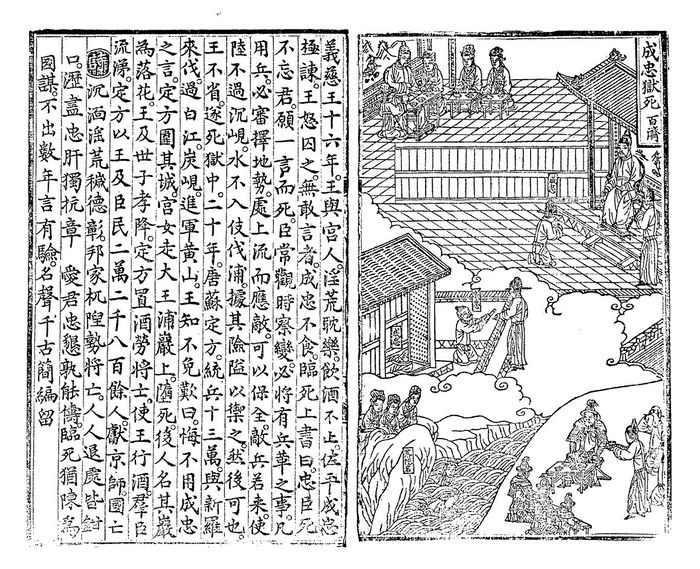 成忠獄死 百濟
成忠
成忠
義慈王十六年。王與宮人。淫荒耽樂。飲酒不止。佐平成忠
極諫。王怒囚之。無敢言者。成忠不食。臨死上書曰。忠臣死
不忘君。願一言而死。臣常觀時察變。必將有兵革之事。凡
用兵。必審擇地勢。處上流而應敵。可以保全。敵兵若來。使
陸不過沉峴。水不入伎伐浦。據其險隘以禦之。然後可也。
王不省。遂死獄中。二十年。唐蘇定方。統兵十三萬。與新羅
來伐。過白江。炭峴。進軍黃山。王知不免。歎曰。悔不用成忠
之言。定方圍其城。宮女走大王浦巖上。墮死。後人名其巖
為落花。王及世子孝降。定方置酒勞將士。使王行酒。群臣
流涕。定方以王及臣民二萬二千八百餘人。獻京師。國亡
詩 沉湎淫荒穢德彰。邦家杌隉勢將亡。人人退處皆鉗
口。瀝盡忠肝獨抗章 愛君忠懇孰能儔。臨死猶陳為
國謀。不出數年言有驗。名聲千古簡編留